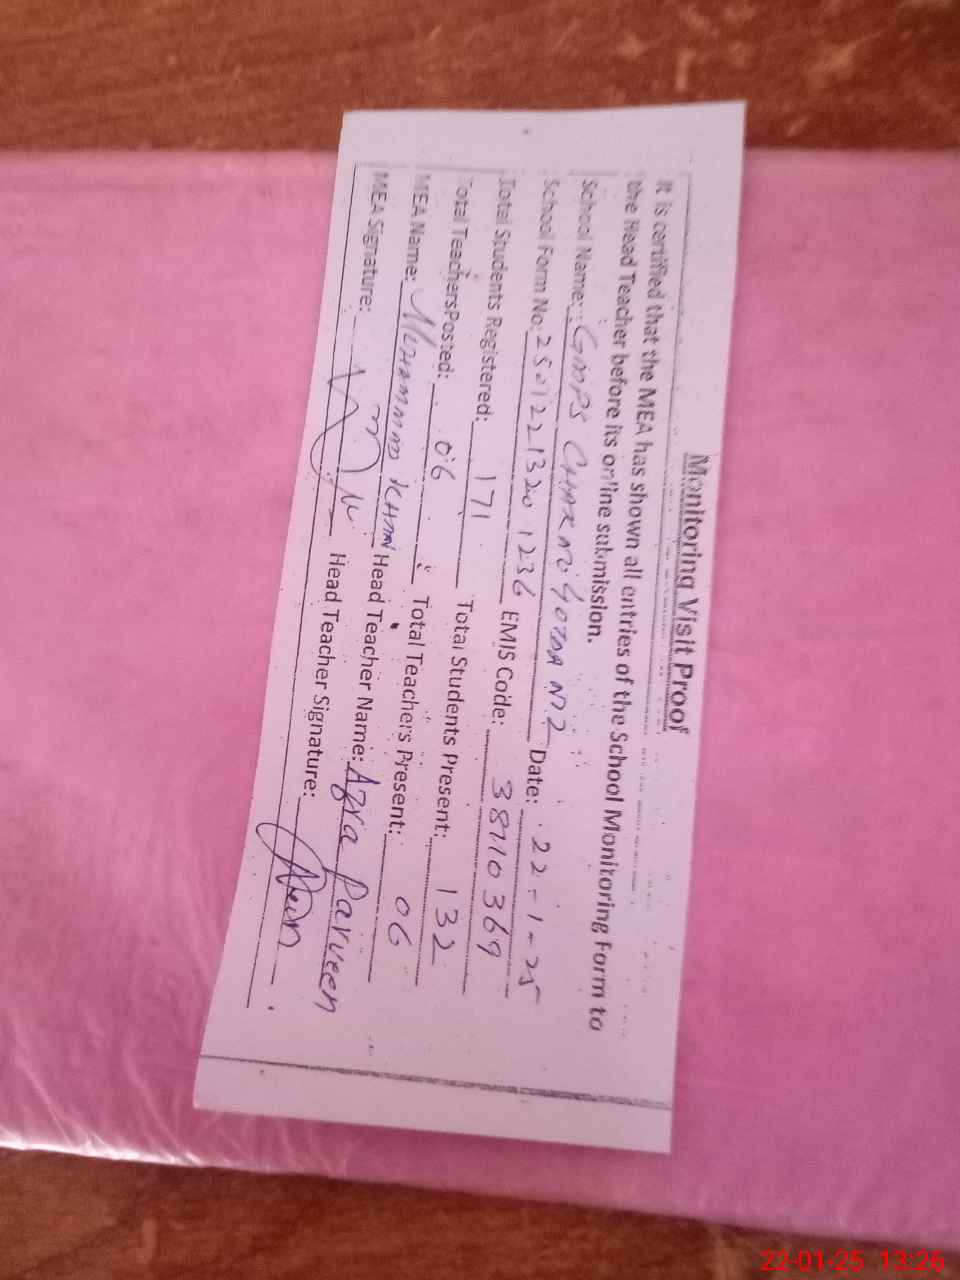 Monitoring Visit Proof
It is certified that the MEA has shown all entries of the School Monitoring Form to
the Head Teacher before its online submission.
School Name: GMPS CHAK NO 40TDA N.2
School Form No: 25012213201236 Date: 22-1-25
Total Students Registered: 171 EMIS Code: 38110369
Total Teachers Posted: 06 Total Students Present: 132
MEA Name: MUHAMMAD KHAN Total Teachers Present: 06
MEA Signature: Head Teacher Name: Azra Parveen
Head Teacher Signature:
22-01-25 13:26